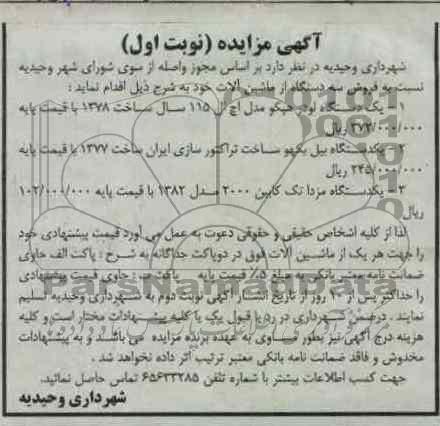 آگهی مزایده (نوبت اول)
شهرداری وحیدیه در نظر دارد بر اساس مجوز واصله از سوی شورای شهر وحیدیه
نسبت به فروش سه دستگاه از ماشین آلات خود به شرح ذیل اقدام نماید :
۱- یک دستگاه لودر هپکو مدل اچ ال ۱۱۵ سال ساخت ۱۳۷۸ با قیمت پایه
۳۷۲/۰۰۰/۰۰۰ ریال
۲- یکدستگاه بیل بکهو ساخت تراکتور سازی ایران ساخت ۱۳۷۷ با قیمت پایه
۲۴۵/۰۰۰/۰۰۰ ریال
۳- یکدستگاه مزدا تک کابین ۲۰۰۰ مدل ۱۳۸۲ با قیمت پایه ۱۰۲/۰۰۰/۰۰۰
ریال
لذا از کلیه اشخاص حقیقی و حقوقی دعوت به عمل می آورد قیمت پیشنهادی خود
را جهت هر یک از ماشین آلات فوق در دوپاکت جداگانه به شرح : پاکت الف حاوی
ضمانت نامه معتبر بانکی به مبلغ ۵٪ قیمت پایه پاکت ب : حاوی قیمت پیشنهادی
را حداکثر پس از ۱۰ روز از تاریخ انتشار آگهی نوبت دوم به شهرداری وحیدیه تسلیم
نمایند . درضمن شهرداری در رد یا قبول یک یا کلیه پیشنهادات مختار است و کلیه
هزینه درج آگهی نیز بطور مساوی به عهده برنده مزایده می باشد و به پیشنهادات
مخدوش و فاقد ضمانت نامه بانکی معتبر ترتیب اثر داده نخواهد شد .
جهت کسب اطلاعات بیشتر با شماره تلفن ۶۵۶۳۳۲۸۵ تماس حاصل نمائید.
شهرداری وحیدیه
ParsNamadData